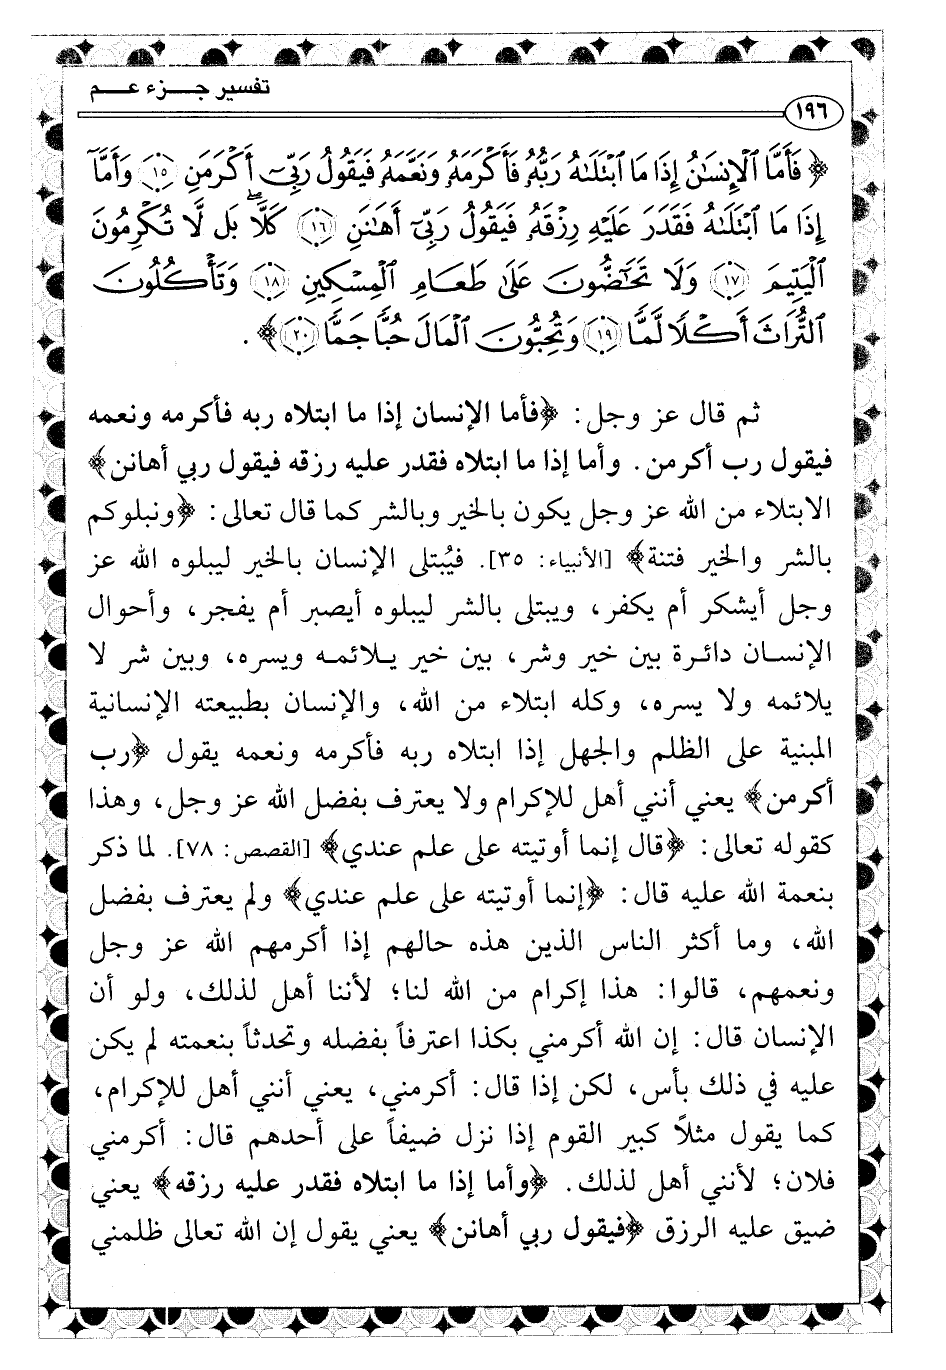 تفسير جـــزء عـــم
١٩٦
﴿ فَأَمَّا ٱلْإِنسَٰنُ إِذَا مَا ٱبْتَلَىٰهُ رَبُّهُۥ فَأَكْرَمَهُۥ وَنَعَّمَهُۥ فَيَقُولُ رَبِّىٓ أَكْرَمَنِ ١٥ وَأَمَّآ
إِذَا مَا ٱبْتَلَىٰهُ فَقَدَرَ عَلَيْهِ رِزْقَهُۥ فَيَقُولُ رَبِّىٓ أَهَٰنَنِ ١٦ كَلَّا ۖ بَل لَّا تُكْرِمُونَ
ٱلْيَتِيمَ ١٧ وَلَا تَحَٰٓضُّونَ عَلَىٰ طَعَامِ ٱلْمِسْكِينِ ١٨ وَتَأْكُلُونَ
ٱلتُّرَاثَ أَكْلًا لَّمًّا ١٩ وَتُحِبُّونَ ٱلْمَالَ حُبًّا جَمًّا ٢٠ ﴾ .
ثم قال عز وجل: ﴿فأما الإنسان إذا ما ابتلاه ربه فأكرمه ونعمه
فيقول رب أكرمن. وأما إذا ما ابتلاه فقدر عليه رزقه فيقول ربي أهانن﴾
الابتلاء من الله عز وجل يكون بالخير وبالشر كما قال تعالى: ﴿ونبلوكم
بالشر والخير فتنة﴾ [الأنبياء: ٣٥]. فيُبتلى الإنسان بالخير ليبلوه الله عز
وجل أيشكر أم يكفر، ويبتلى بالشر ليبلوه أيصبر أم يفجر، وأحوال
الإنسان دائرة بين خير وشر، بين خير يلائمه ويسره، وبين شر لا
يلائمه ولا يسره، وكله ابتلاء من الله، والإنسان بطبيعته الإنسانية
المبنية على الظلم والجهل إذا ابتلاه ربه فأكرمه ونعمه يقول ﴿رب
أكرمن﴾ يعني أنني أهل للإكرام ولا يعترف بفضل الله عز وجل، وهذا
كقوله تعالى: ﴿قال إنما أوتيته على علم عندي﴾ [القصص: ٧٨]. لما ذكر
بنعمة الله عليه قال: ﴿إنما أوتيته على علم عندي﴾ ولم يعترف بفضل
الله، وما أكثر الناس الذين هذه حالهم إذا أكرمهم الله عز وجل
ونعمهم، قالوا: هذا إكرام من الله لنا؛ لأننا أهل لذلك، ولو أن
الإنسان قال: إن الله أكرمني بكذا اعترفاً بفضله وتحدثاً بنعمته لم يكن
عليه في ذلك بأس، لكن إذا قال: أكرمني، يعني أنني أهل للإكرام،
كما يقول مثلاً كبير القوم إذا نزل ضيفاً على أحدهم قال: أكرمني
فلان؛ لأنني أهل لذلك. ﴿وأما إذا ما ابتلاه فقدر عليه رزقه﴾ يعني
ضيق عليه الرزق ﴿فيقول ربي أهانن﴾ يعني يقول إن الله تعالى ظلمني